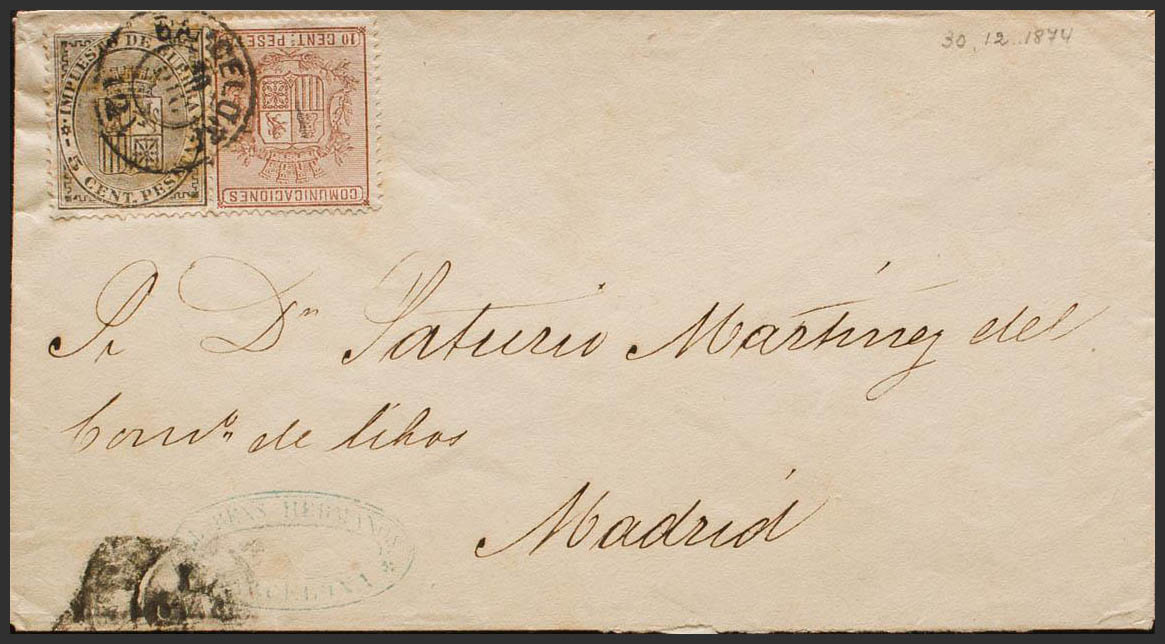 30.12.1874
IMPUESTO DE GUERRA
5 CENT. PESETA
10 CENT. PESETA
COMUNICACIONES
Sr Dn Saturio Martinez del
Comº de
Madrid
HERMANOS
BARCELONA